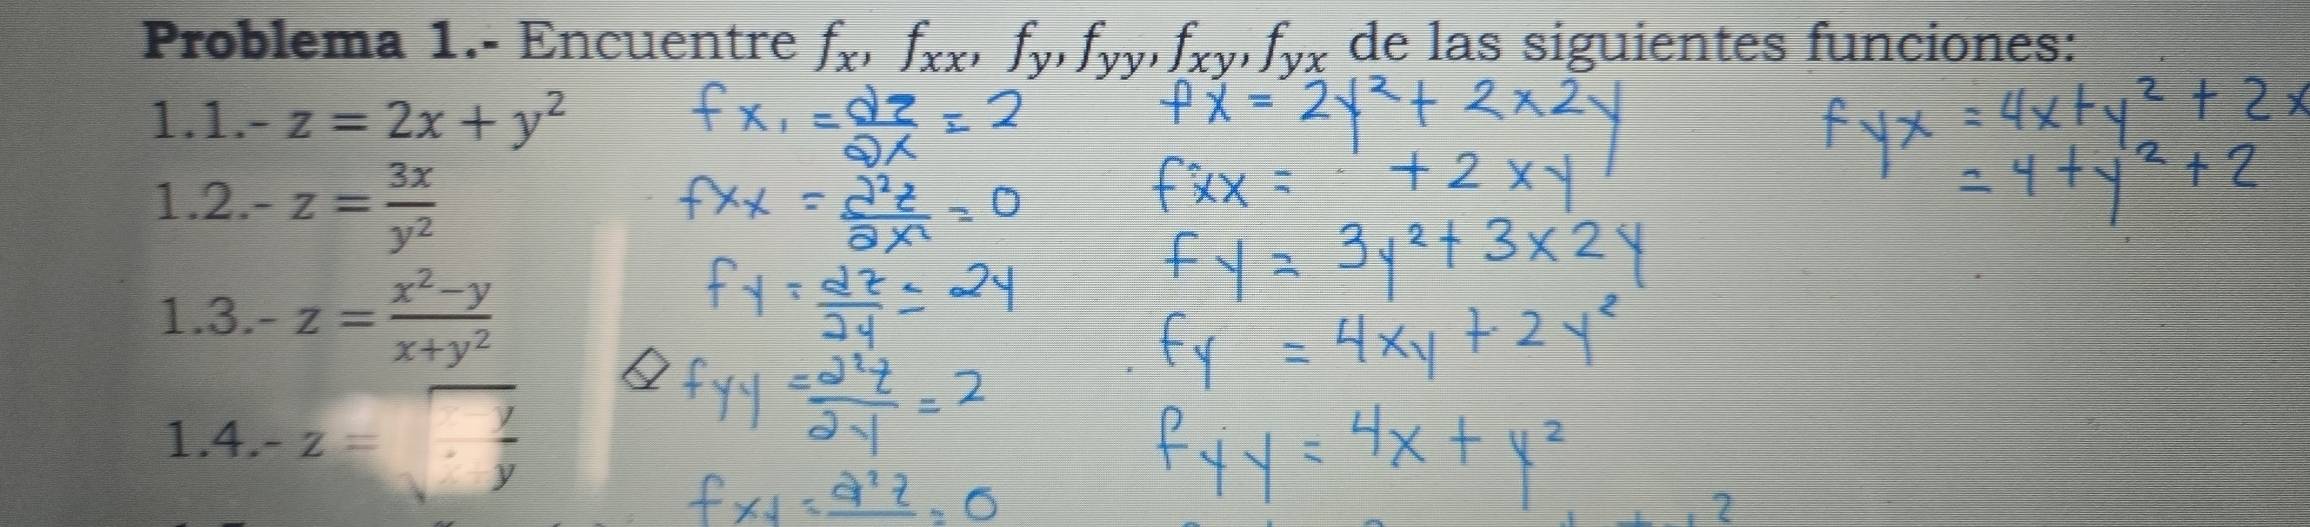 Problema 1.- Encuentre fx, fxx, fy, fyy, fxy, fyx de las siguientes funciones:
1.1.- z = 2x + y²
1.2.- z = 3x/y²
1.3.- z = x²−y/x+y²
1.4.- z =
fx, = ∂z/∂x = 2
fxx = ∂²z/∂x² = 0
fy = ∂z/∂y = 2y
fyy = ∂²z/∂y = 2
fxy = ∂²z = 0
fx = 2y² + 2x2y
fxx = + 2xy
fy = 3y² + 3x2y
fy = 4xy + 2y²
fyy = 4x + y²
fyx = 4x + y² + 2x
= 4 + y² + 2